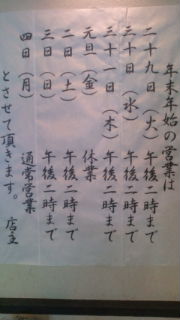 年末年始の営業は
二十九日（火）午後二時まで
三十日（水）午後二時まで
三十一日（木）午後二時まで
元旦（金）休業
二日（土）午後二時まで
三日（日）午後二時まで
四日（月）通常営業
とさせて頂きます。店主